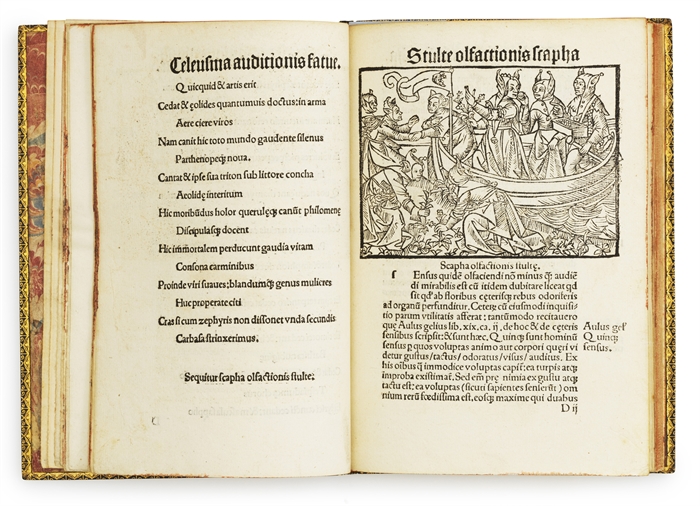 Celeusma auditionis fatue.
Quicquid & artis erit
Cedat & ęolides quantumuis doctus: in arma
Aere ciere viros
Nam canit hic toto mundo gaudente silenus
Parthenopeqꝫ noua.
Cantat & ipse sua triton sub littore concha
Aeolidę interitum
Hic moribũdus holor querulęqꝫ canũt philomenę
Discipulasqꝫ docent
Hic im̃ortalem perducunt gaudia vitam
Consona carminibus
Proinde viri suaues: blandumqꝫ genus mulieres
Huc properate citi
Cras si cum zephyris non dissonet vnda secundis
Carbasa strioxerimus.
Sequitur scapha olfactionis stulte:
Stulte olfactionis scapha
Scapha olfactionis stultę.
Ensus quidẽ olfaciendi nõ minus ꝗ̃ audiẽ
di mirabilis est cũ itidem dubitare liceat qd
sit qd' ab floribus cęterisqꝫ rebus odoriferis
ad organũ perfunditur. Ceterꝫ cũ eiusmodi inquisi
tio parum vtilitatis afferat: tantummodo recitauero
quę Aulus gelius lib. xix. ca. ij. de hoc & de cęteris
sensibus scripsit: & sunt hæc. Quinqꝫ sunt hominũ
sensus ꝑ quos voluptas animo aut corpori quęri vi
detur gustus/tactus/odoratus/visus/auditus. Ex
his oĩbus ꝗ̃ immodice voluptas capit̃: ea turpis atqꝫ
improba existimat̃. Sed em̃ prę nimia ex gustu atqꝫ
tactu est: ea voluptas (sicuti sapientes senserũt) om
nium rerũ fœdissima est. eosqꝫ maxime qui duabus
Aulus gel'
Quinqꝫ
sensus.
D ij